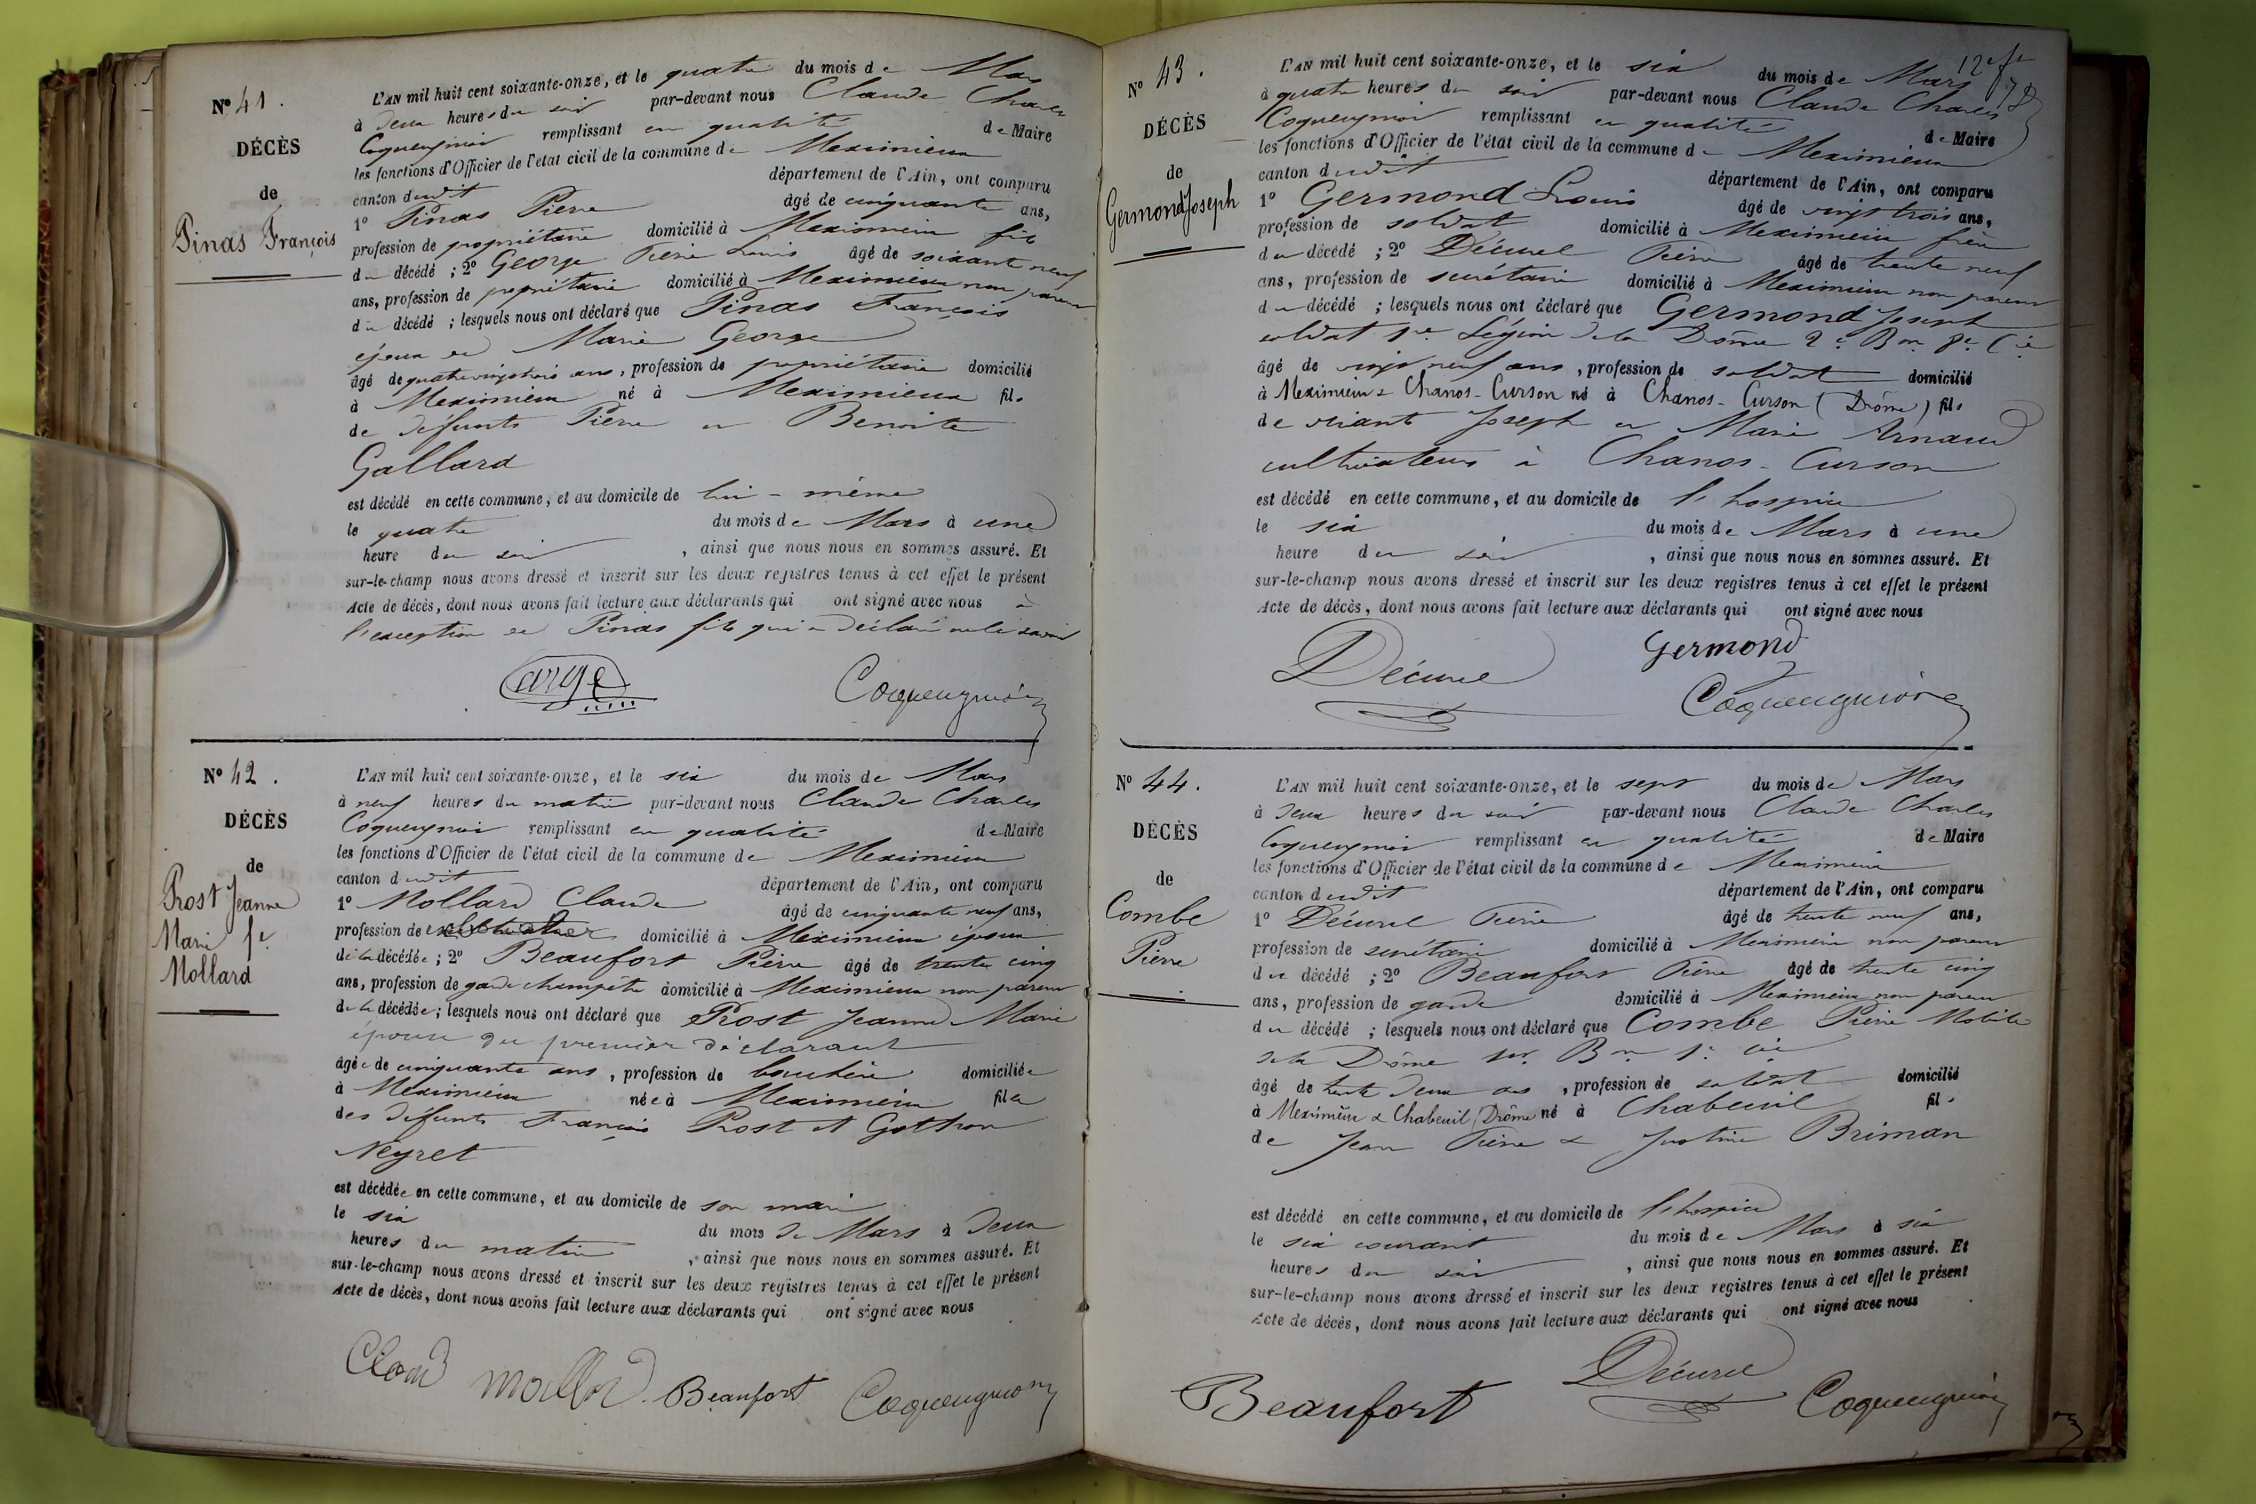 N° 41.
DÉCÈS
de
Pinas François
L'AN mil huit cent soixante-onze, et le quatre du mois de Mars
à deux heures du soir par-devant nous Claude Charles
Coquengniot remplissant en qualité de Maire
les fonctions d'Officier de l'état civil de la commune de Meximieux
canton dudit département de l'Ain, ont comparu
1° Pinas Pierre âgé de cinquante ans,
profession de propriétaire domicilié à Meximieux fils
du décédé ; 2° George Pierre Louis âgé de soixante neuf
ans, profession de propriétaire domicilié à Meximieux non parent
du décédé ; lesquels nous ont déclaré que Pinas François
époux de Marie George
âgé de quatrevingtrois ans, profession de propriétaire domicilié
à Meximieux né à Meximieux fils
de défunts Pierre et Benoite
Gallard
est décédé en cette commune, et au domicile de lui-même
le quatre du mois de Mars à une
heure du soir, ainsi que nous nous en sommes assuré. Et
sur-le-champ nous avons dressé et inscrit sur les deux registres tenus à cet effet le présent
Acte de décès, dont nous avons fait lecture aux déclarants qui ont signé avec nous à
l'exception de Pinas fils qui a déclaré ne le savoir
N° 42.
DÉCÈS
de
Prost Jeanne
Marie fe
Mollard
L'AN mil huit cent soixante-onze, et le six du mois de Mars
à neuf heures du matin par-devant nous Claude Charles
Coquengniot remplissant en qualité de Maire
les fonctions d'Officier de l'état civil de la commune de Meximieux
canton dudit département de l'Ain, ont comparu
1° Mollard Claude âgé de cinquante neuf ans,
profession de domicilié à Meximieux époux
de la décédée ; 2° Beaufort Pierre âgé de trente cinq
ans, profession de garde champêtre domicilié à Meximieux non parent
de la décédée ; lesquels nous ont déclaré que Prost Jeanne Marie
épouse du premier déclarant
âgée de cinquante ans, profession de domiciliée
à Meximieux née à Meximieux fille
des défunts François Prost et Gothon
Neyret
est décédée en cette commune, et au domicile de son mari
le six du mois de Mars à deux
heures du matin, ainsi que nous nous en sommes assuré. Et
sur-le-champ nous avons dressé et inscrit sur les deux registres tenus à cet effet le présent
Acte de décès, dont nous avons fait lecture aux déclarants qui ont signé avec nous
Beaufort Coquengniot
N° 43.
DÉCÈS
de
Germond Joseph
L'AN mil huit cent soixante-onze, et le six du mois de Mars
à quatre heures du soir par-devant nous Claude Charles
Coquengniot remplissant en qualité de Maire
les fonctions d'Officier de l'état civil de la commune de Meximieux
canton dudit département de l'Ain, ont comparu
1° Germond Louis âgé de vingt trois ans,
profession de soldat domicilié à Meximieux frère
du décédé ; 2° Décurel Pierre âgé de trente neuf
ans, profession de secrétaire domicilié à Meximieux non parent
du décédé ; lesquels nous ont déclaré que Germond Joseph
soldat 1re Légion de la Drôme 2e Bon 8e Cie
âgé de vingt neuf ans, profession de soldat domicilié
à Meximieux & Chanos-Curson né à Chanos-Curson (Drôme) fils
de vivants Joseph et Marie Arnaud
cultivateurs à Chanos-Curson
est décédé en cette commune, et au domicile de l'hospice
le six du mois de Mars à une
heure du soir, ainsi que nous nous en sommes assuré. Et
sur-le-champ nous avons dressé et inscrit sur les deux registres tenus à cet effet le présent
Acte de décès, dont nous avons fait lecture aux déclarants qui ont signé avec nous
Décurel Germond
Coquengniot
N° 44.
DÉCÈS
de
Combe
Pierre
L'AN mil huit cent soixante-onze, et le sept du mois de Mars
à deux heures du soir par-devant nous Claude Charles
Coquengniot remplissant en qualité de Maire
les fonctions d'Officier de l'état civil de la commune de Meximieux
canton dudit département de l'Ain, ont comparu
1° Décurel Pierre âgé de trente neuf ans,
profession de secrétaire domicilié à Meximieux non parent
du décédé ; 2° Beaufort Pierre âgé de trente cinq
ans, profession de garde domicilié à Meximieux non parent
du décédé ; lesquels nous ont déclaré que Combe Pierre Mobile
de la Drôme 1er Bon 1e Cie
âgé de trente deux ans, profession de soldat domicilié
à Meximieux & Chabeuil (Drôme né à Chabeuil fils
de Jean Pierre & Justine Briman
est décédé en cette commune, et au domicile de l'hospice
le six courant du mois de Mars à six
heures du soir, ainsi que nous nous en sommes assuré. Et
sur-le-champ nous avons dressé et inscrit sur les deux registres tenus à cet effet le présent
Acte de décès, dont nous avons fait lecture aux déclarants qui ont signé avec nous
Décurel
Beaufort Coquengniot